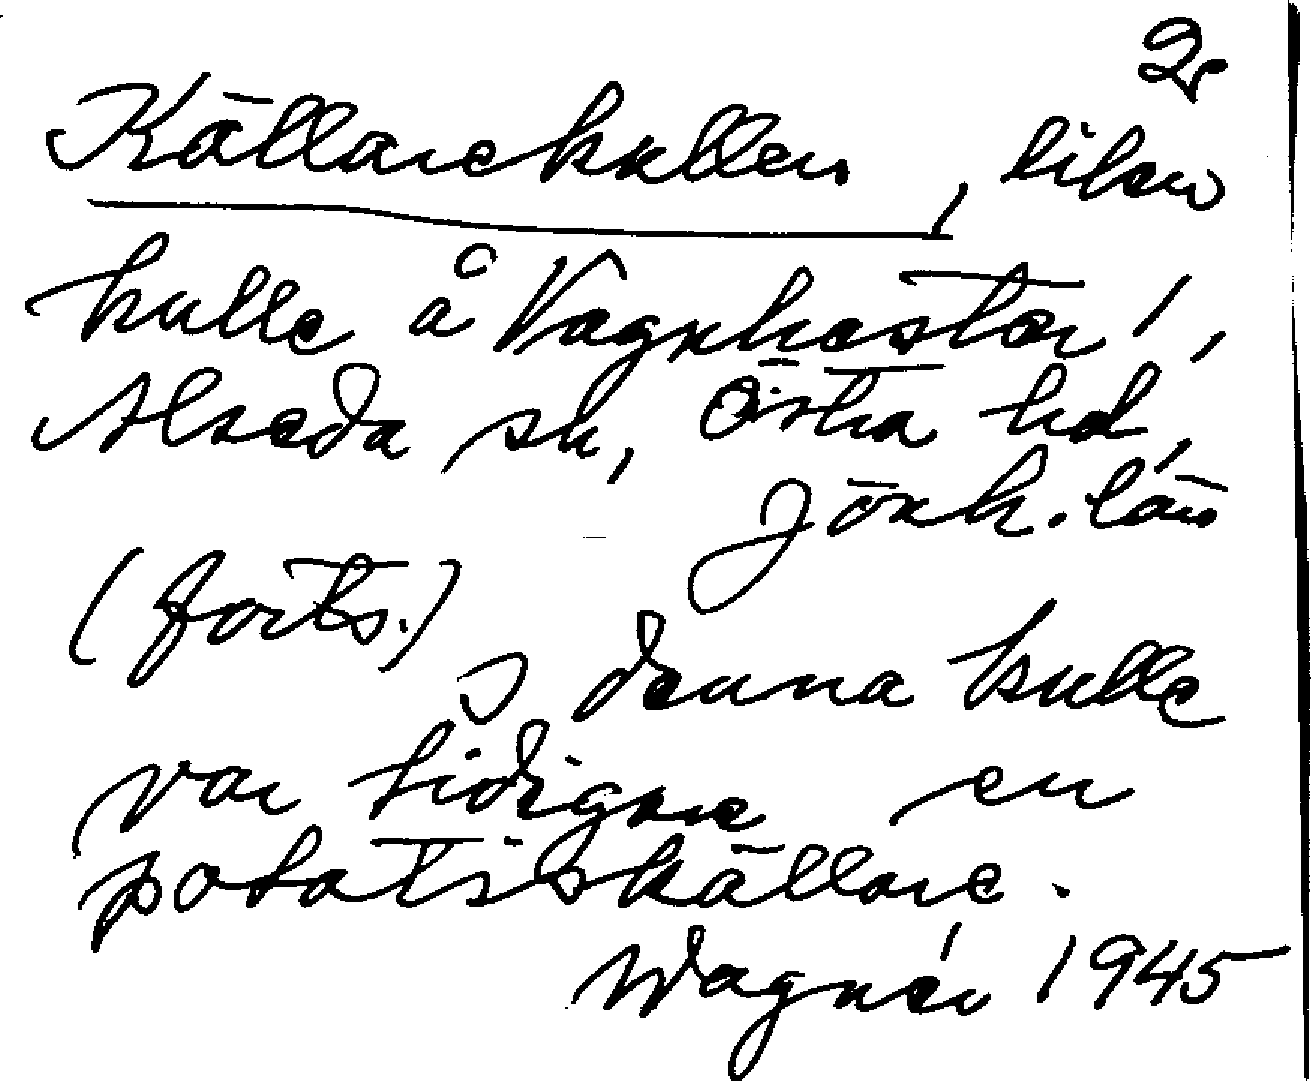 2
Källarekullen, liten
kulle å Vagnhester,
Alseda sn, Östra hd,
Jönk. län
(forts.)
I denna kulle
var tidigare en
potatiskällare.
Wagnér 1945